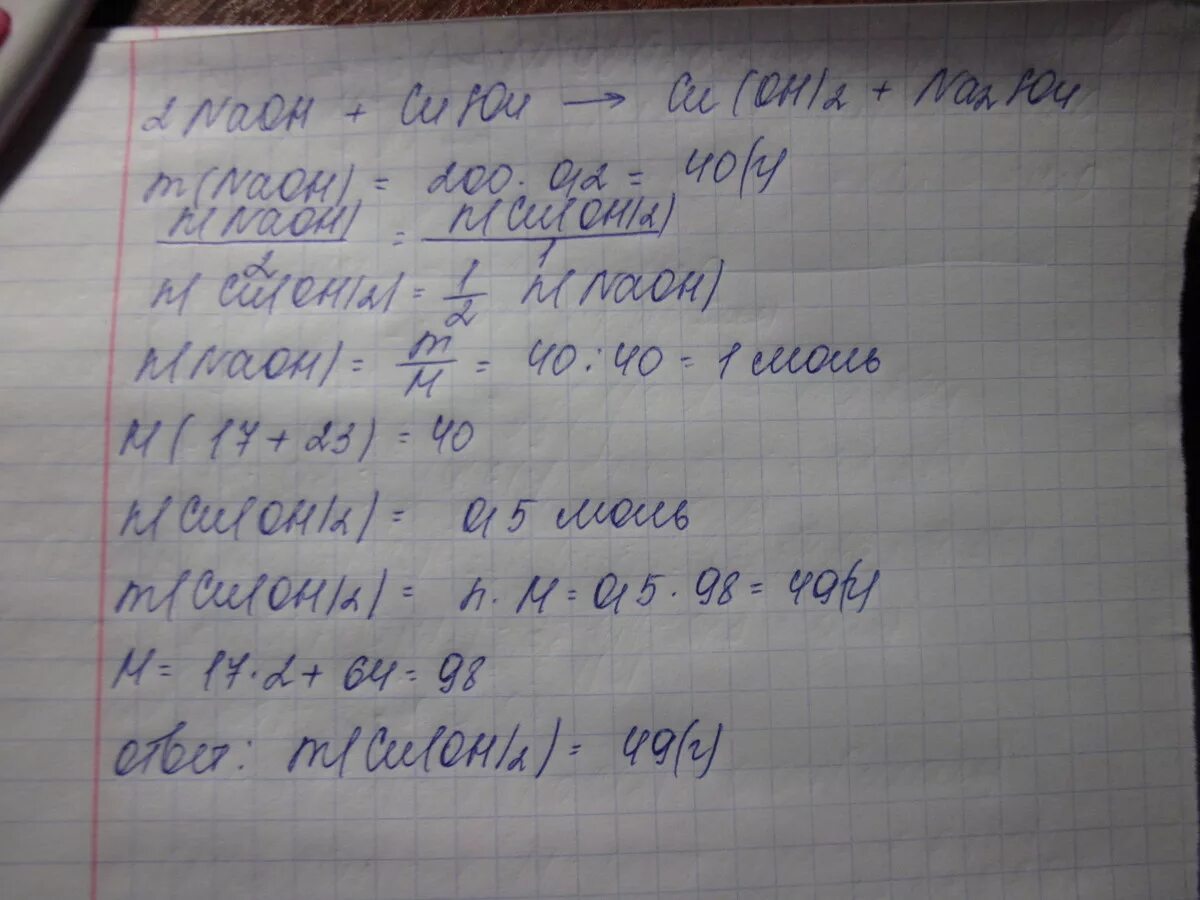 2NaOH + CuSO4 → Cu(OH)2 + Na2SO4
m(NaOH) = 200 · 0,2 = 40(г)
n(NaOH)/2 = n(Cu(OH)2)/1
n(Cu(OH)2) = 1/2 n(NaOH)
n(NaOH) = m/M = 40 : 40 = 1 моль
M(17 + 23) = 40
n(Cu(OH)2) = 0,5 моль
m(Cu(OH)2) = n · M = 0,5 · 98 = 49(г)
M = 17 · 2 + 64 = 98
ответ: m(Cu(OH)2) = 49(г)